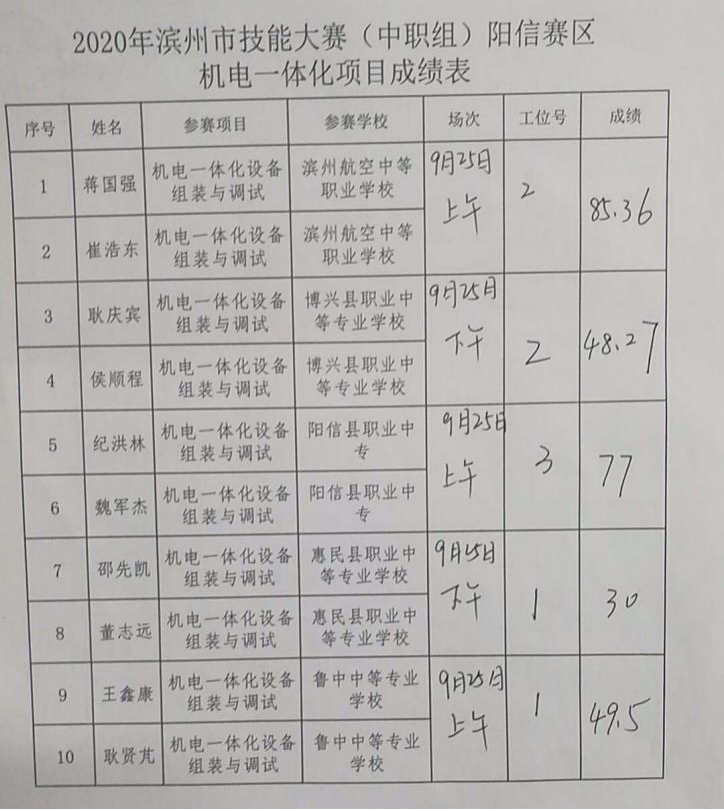 2020年滨州市技能大赛（中职组）阳信赛区
机电一体化项目成绩表
序号 姓名 参赛项目 参赛学校 场次 工位号 成绩
1 蒋国强 机电一体化设备组装与调试 滨州航空中等职业学校 9月25日上午 2 85.36
2 崔浩东 机电一体化设备组装与调试 滨州航空中等职业学校
3 耿庆宾 机电一体化设备组装与调试 博兴县职业中等专业学校 9月25日下午 2 48.27
4 侯顺程 机电一体化设备组装与调试 博兴县职业中等专业学校
5 纪洪林 机电一体化设备组装与调试 阳信县职业中专 9月25日上午 3 77
6 魏军杰 机电一体化设备组装与调试 阳信县职业中专
7 邵先凯 机电一体化设备组装与调试 惠民县职业中等专业学校 9月25日下午 1 30
8 董志远 机电一体化设备组装与调试 惠民县职业中等专业学校
9 王鑫康 机电一体化设备组装与调试 鲁中中等专业学校 9月25日上午 1 49.5
10 耿贤芃 机电一体化设备组装与调试 鲁中中等专业学校